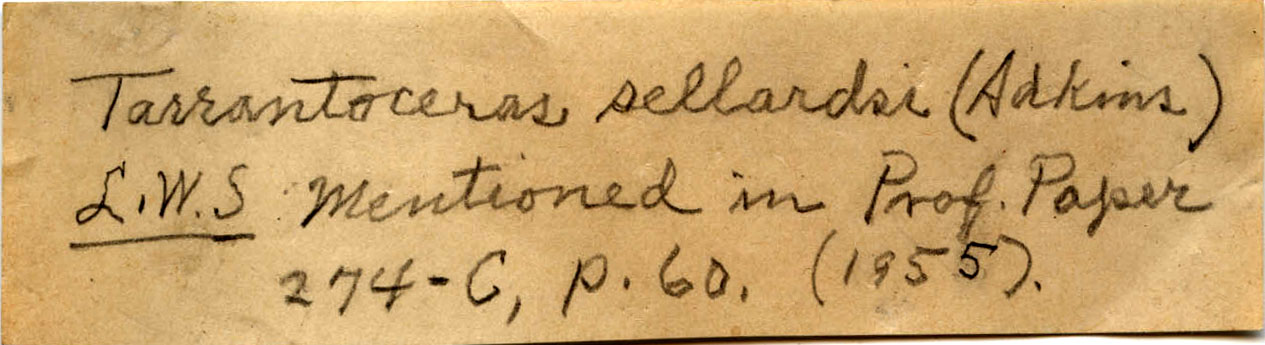 Tarrantoceras sellardsi (Adkins)
L.W.S Mentioned in Prof. Paper
274-C, p. 60. (1955).